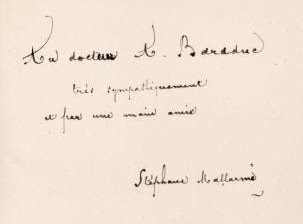 Au docteur H. Baraduc
très sympathiquement
et par une main amie
Stéphane Mallarmé